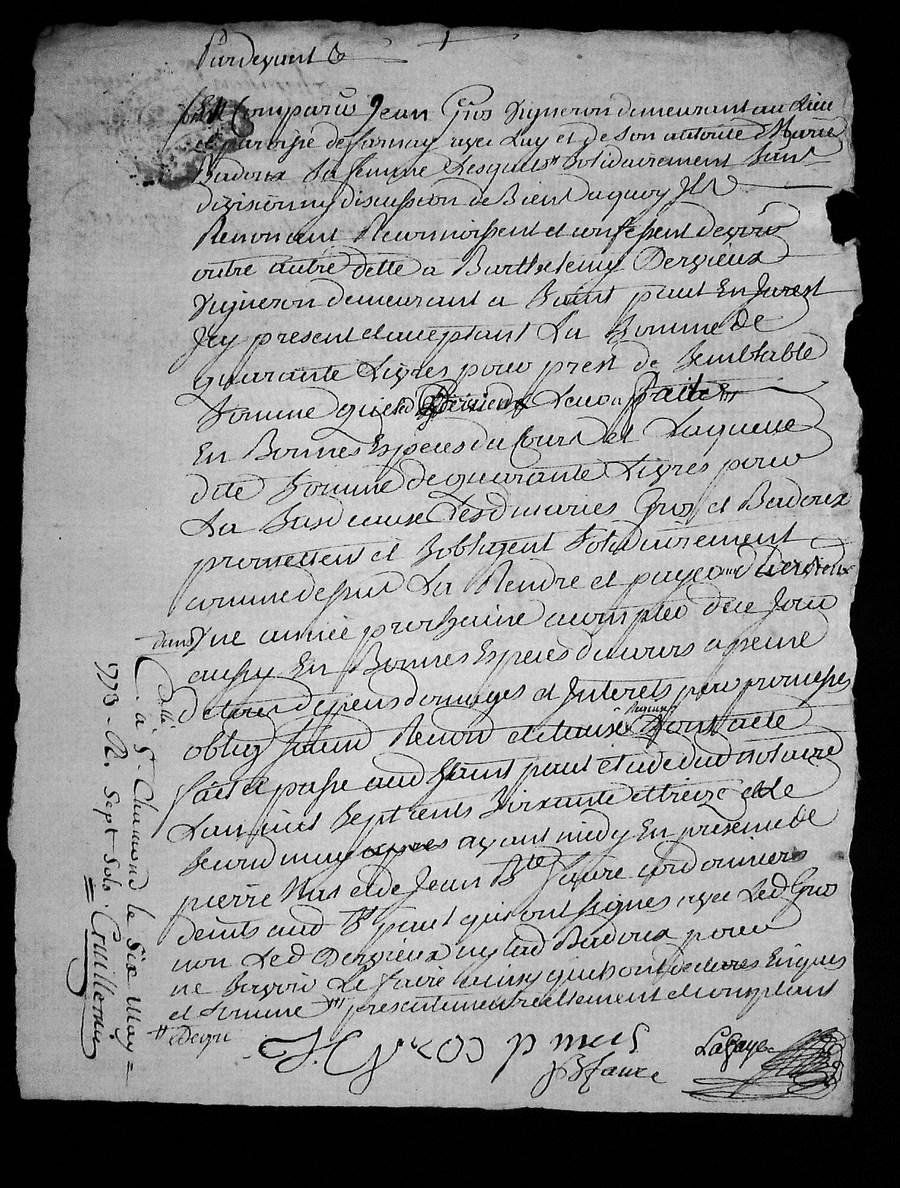 Pardevant &
Est Comparus Jean Gros Vigneron demeurant au Lieu
et paroisse de farnay avec Luy et de son authorité Marie
Badoux sa femme Lesquels solidairement sans
division ny discussion de Biens a quoy Ils
Renoncent Reconnoissent et confessent devoir
outre autre dette a Barthelemy Dervieux
Vigneron demeurant a Saint paul En Jarest
Icy present et acceptant La Somme de
quarante Livres pour prest de semblable
Somme que led Dervieux Leur a fait
En Bonnes Especes du Cours et Laquelle
dite Somme de quarante Livres pour
La Susd cause Lesd maries Gros et Badoux
promettent et s'obligent solidairement
comme dessus La Rendre et payer aud Dervieux
dans Une année prochaine a compter de ce Jour
aussy En Bonnes Especes du cours a peine
de tous depens domages et Interets par promesses
oblig Soum Renon et clause Dont acte
fait et passé aud Saint paul etude dud notaire
L'an mil sept cents soixante et treize et le
second may apres avant midy En presence de
pierre Mas et de Jean Bte faure cordonniers
demts aud St paul qui ont signes avec Led Gros
non Led Dervieux ny lad Badoux pour
ne Savoir Le faire ainsy qu'ils ont declares Enquis
et sommé presentement reellement et comptant
J Gros p mas
JB faure
Lafaye
C.lé à St Chamond le Six May
1773 - R. Sept Sols